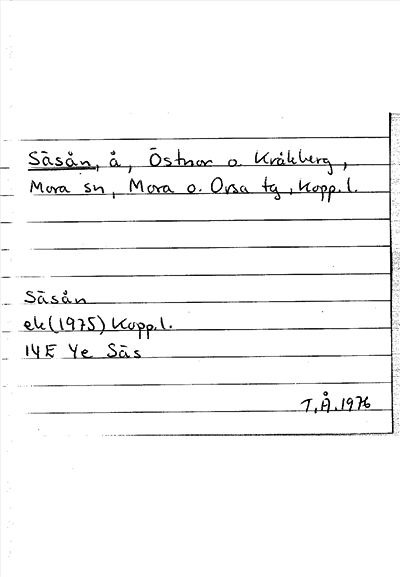 Säsån, å, Östnor o. Kråkberg,
Mora sn, Mora o. Orsa tg, Kopp. l.
Säsån
ek (1975) Kopp. l.
14E Ye Säs
T.Å. 1976